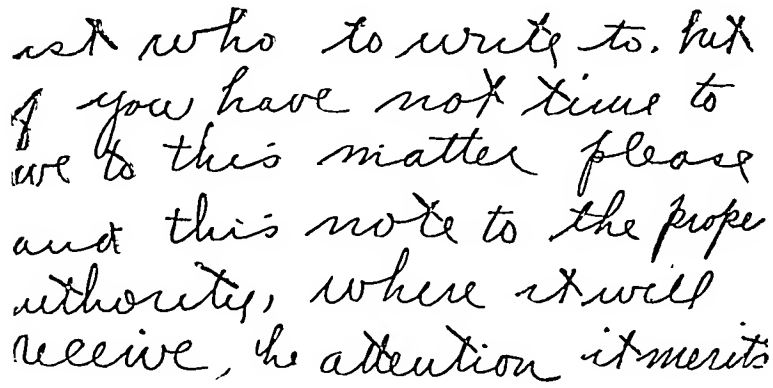 ust who to write to. but
if you have not time to
ive to this matter please
and this note to the prope
uthority, where it will
receive, he attention it merits